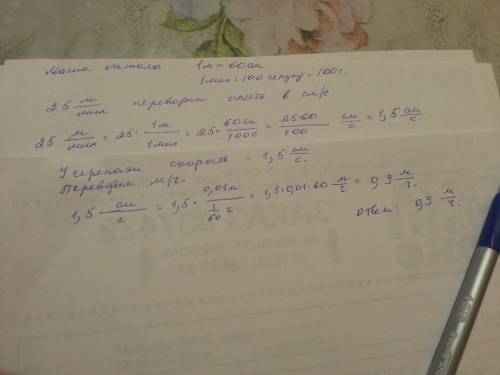 Маша считала 1м = 60см
1мин = 100 секунд = 100с.
25 м/мин переводим опять в см/с.
25 м/мин = 25 · 1м/1мин = 25 · 60см/100с = 25·60/100 см/с = 1,5 см/с
У черепахи скорость – 1,5 см/с.
Переводим м/ч.
1,5 см/с = 1,5 · 0,01м / 1/60 ч = 1,5·0,01·60 м/ч = 0,9 м/ч.
Ответ: 0,9 м/ч.